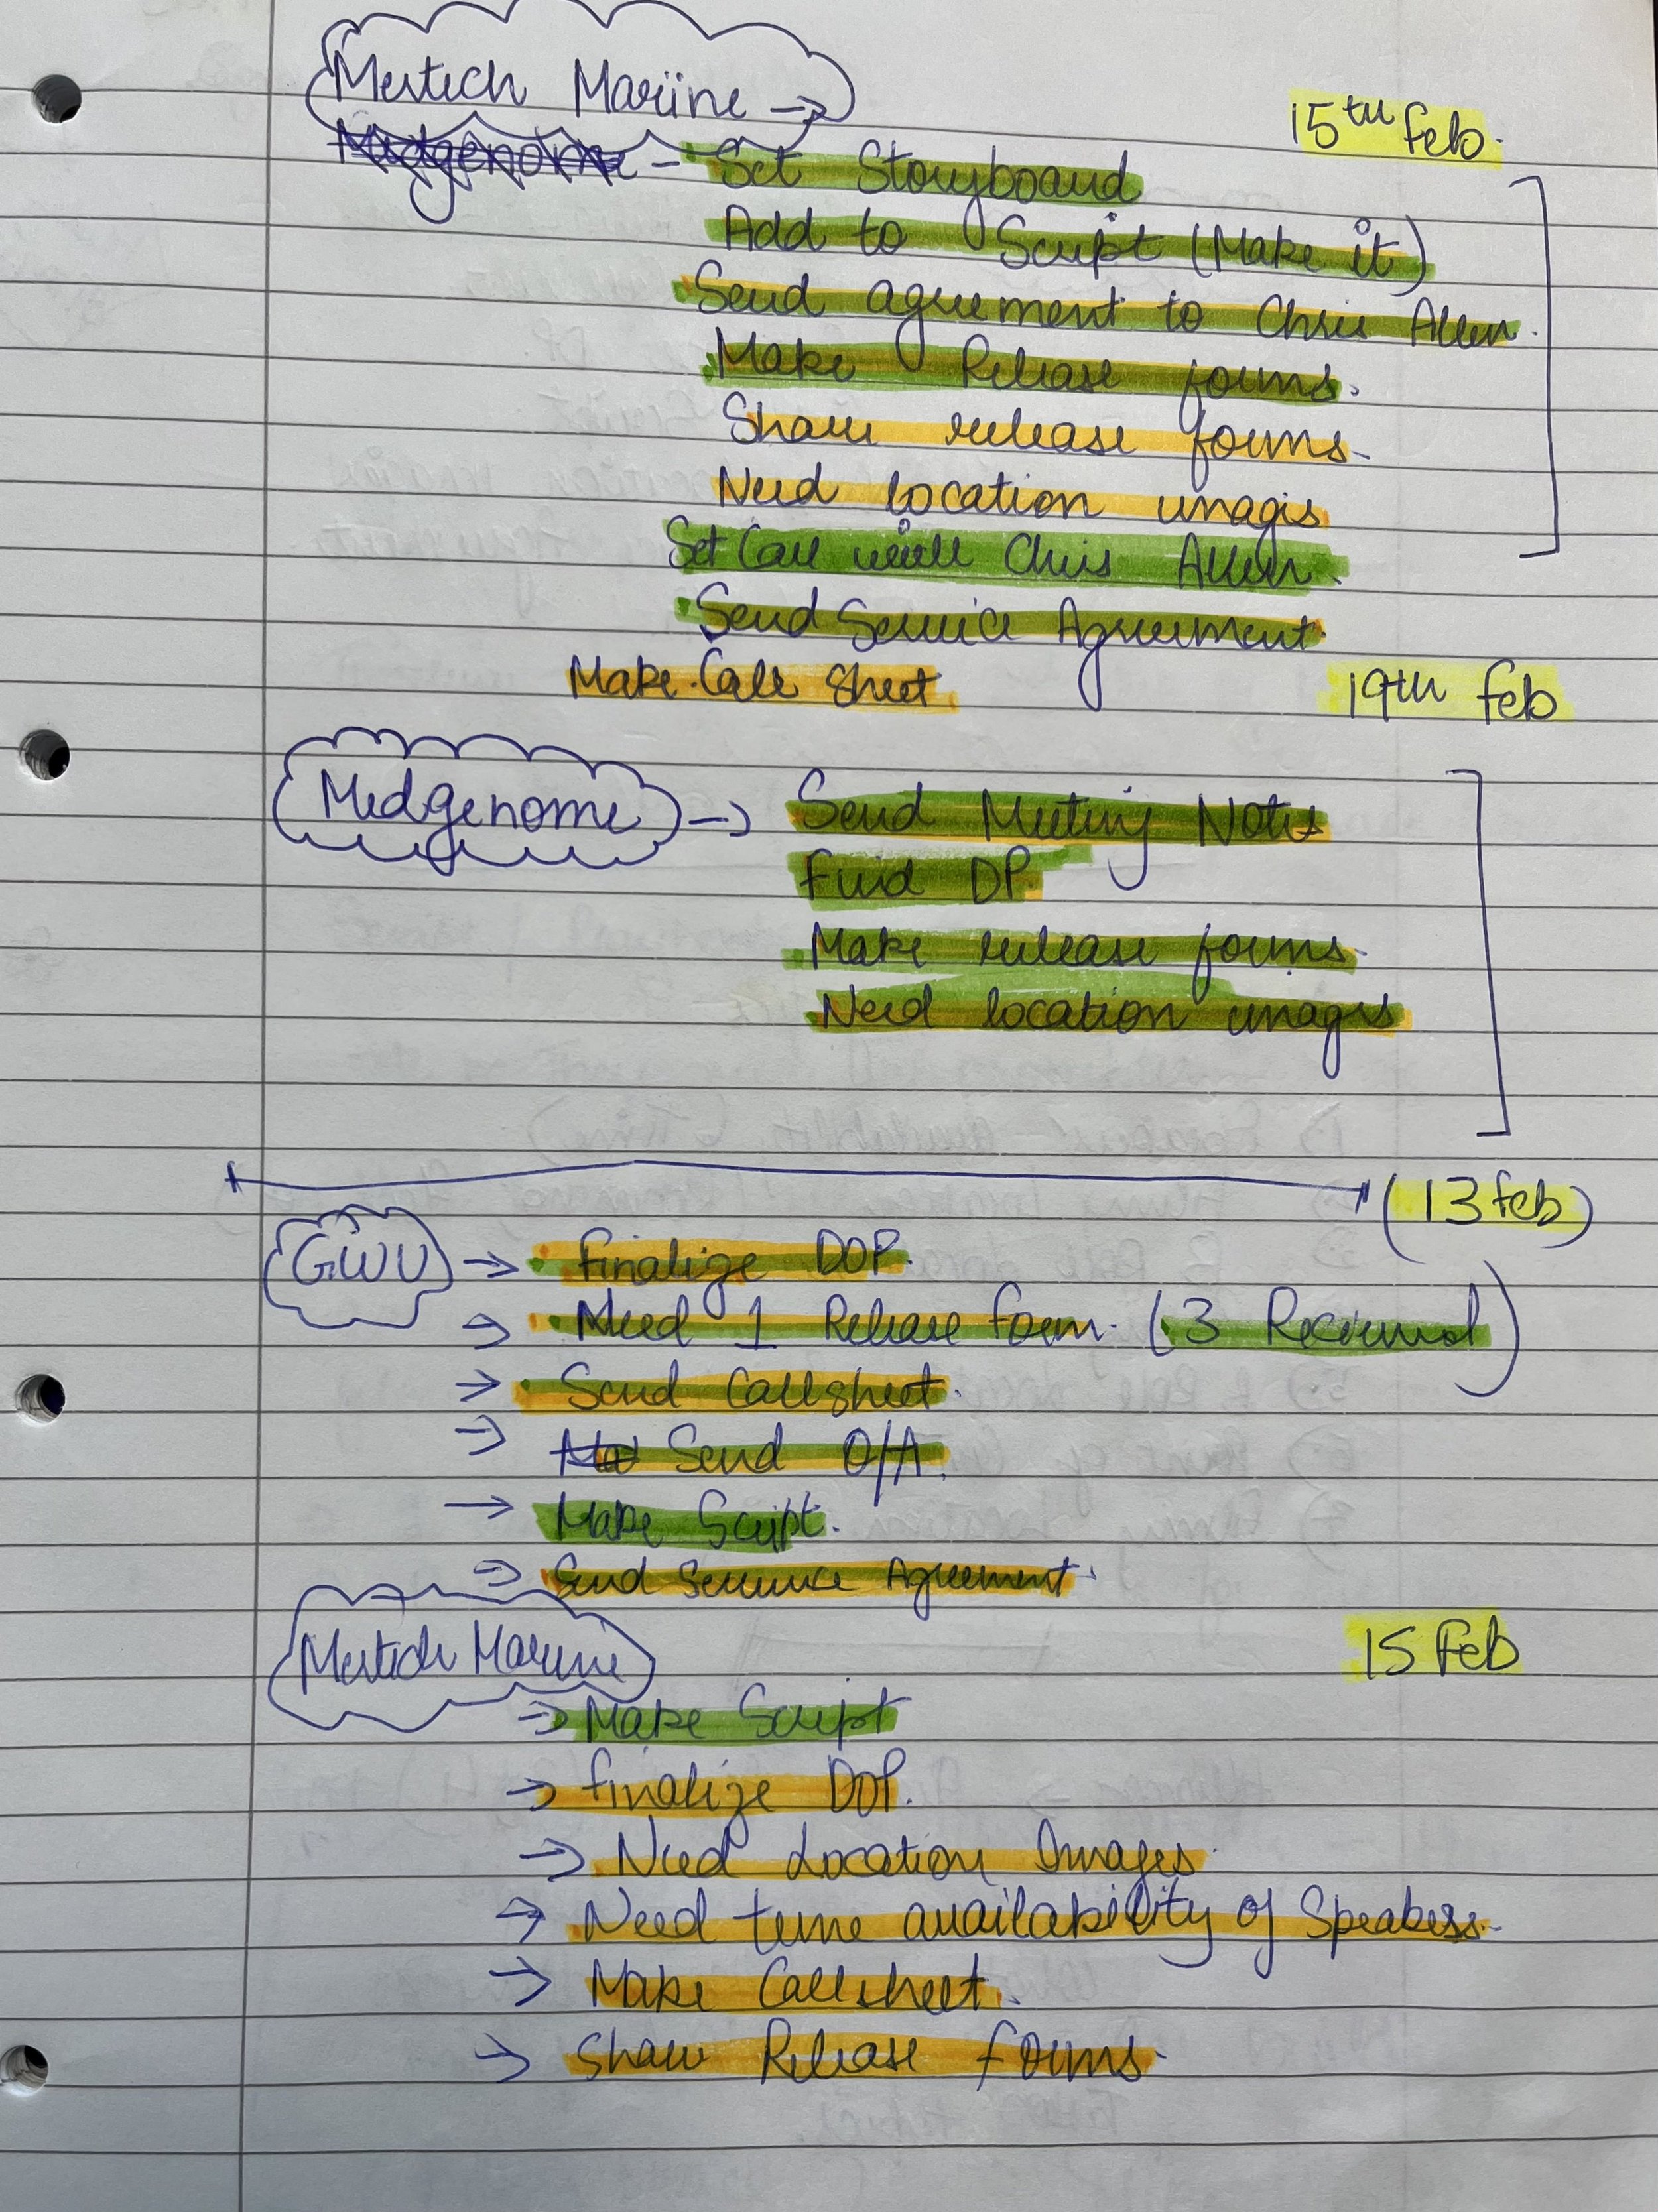 Mertech Mariine →
15th Feb.
Medgenome - Set Storyboard
Add to Script (Make it)
Send agreement to Chris Allen.
Make Release forms.
Share release forms.
Need location images
Set Call with Chris Allen.
Send Service Agreement.
Make Call Sheet
19th Feb
Medgenome → Send Meeting Notes
Find DP.
Make release forms.
Need location images
(13 Feb)
GWU → Finalize DOP.
→ Need 1 Release form. (3 Received)
→ Send Callsheet.
→ Send O/A.
→ Make Script.
→ Send Service Agreement.
Mertech Marine
15 Feb
→ Make Script
→ Finalize DOP.
→ Need Location Images.
→ Need time availability of Speakers.
→ Make Callsheet.
→ Share Release forms.